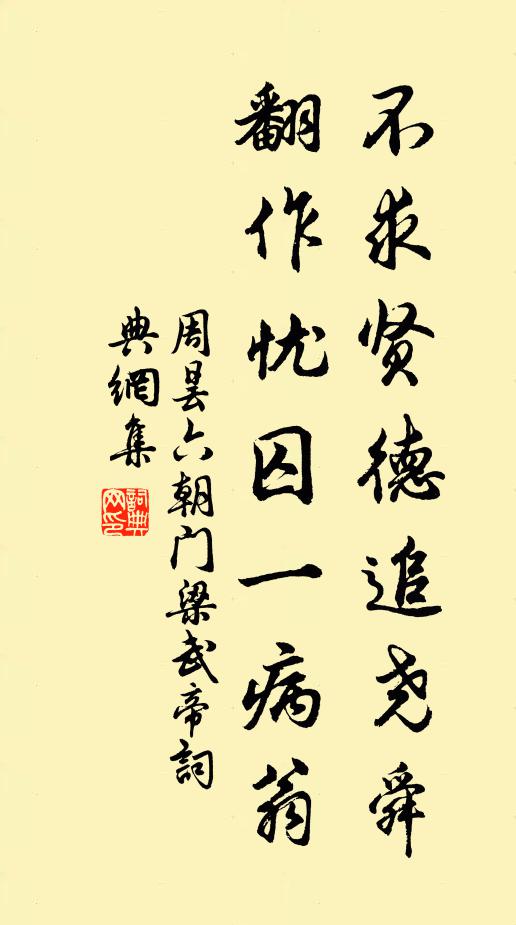 不求贤德追尧舜
翻作忧囚一病翁
周昙六朝门梁武帝詞
典網集
詞典
网印